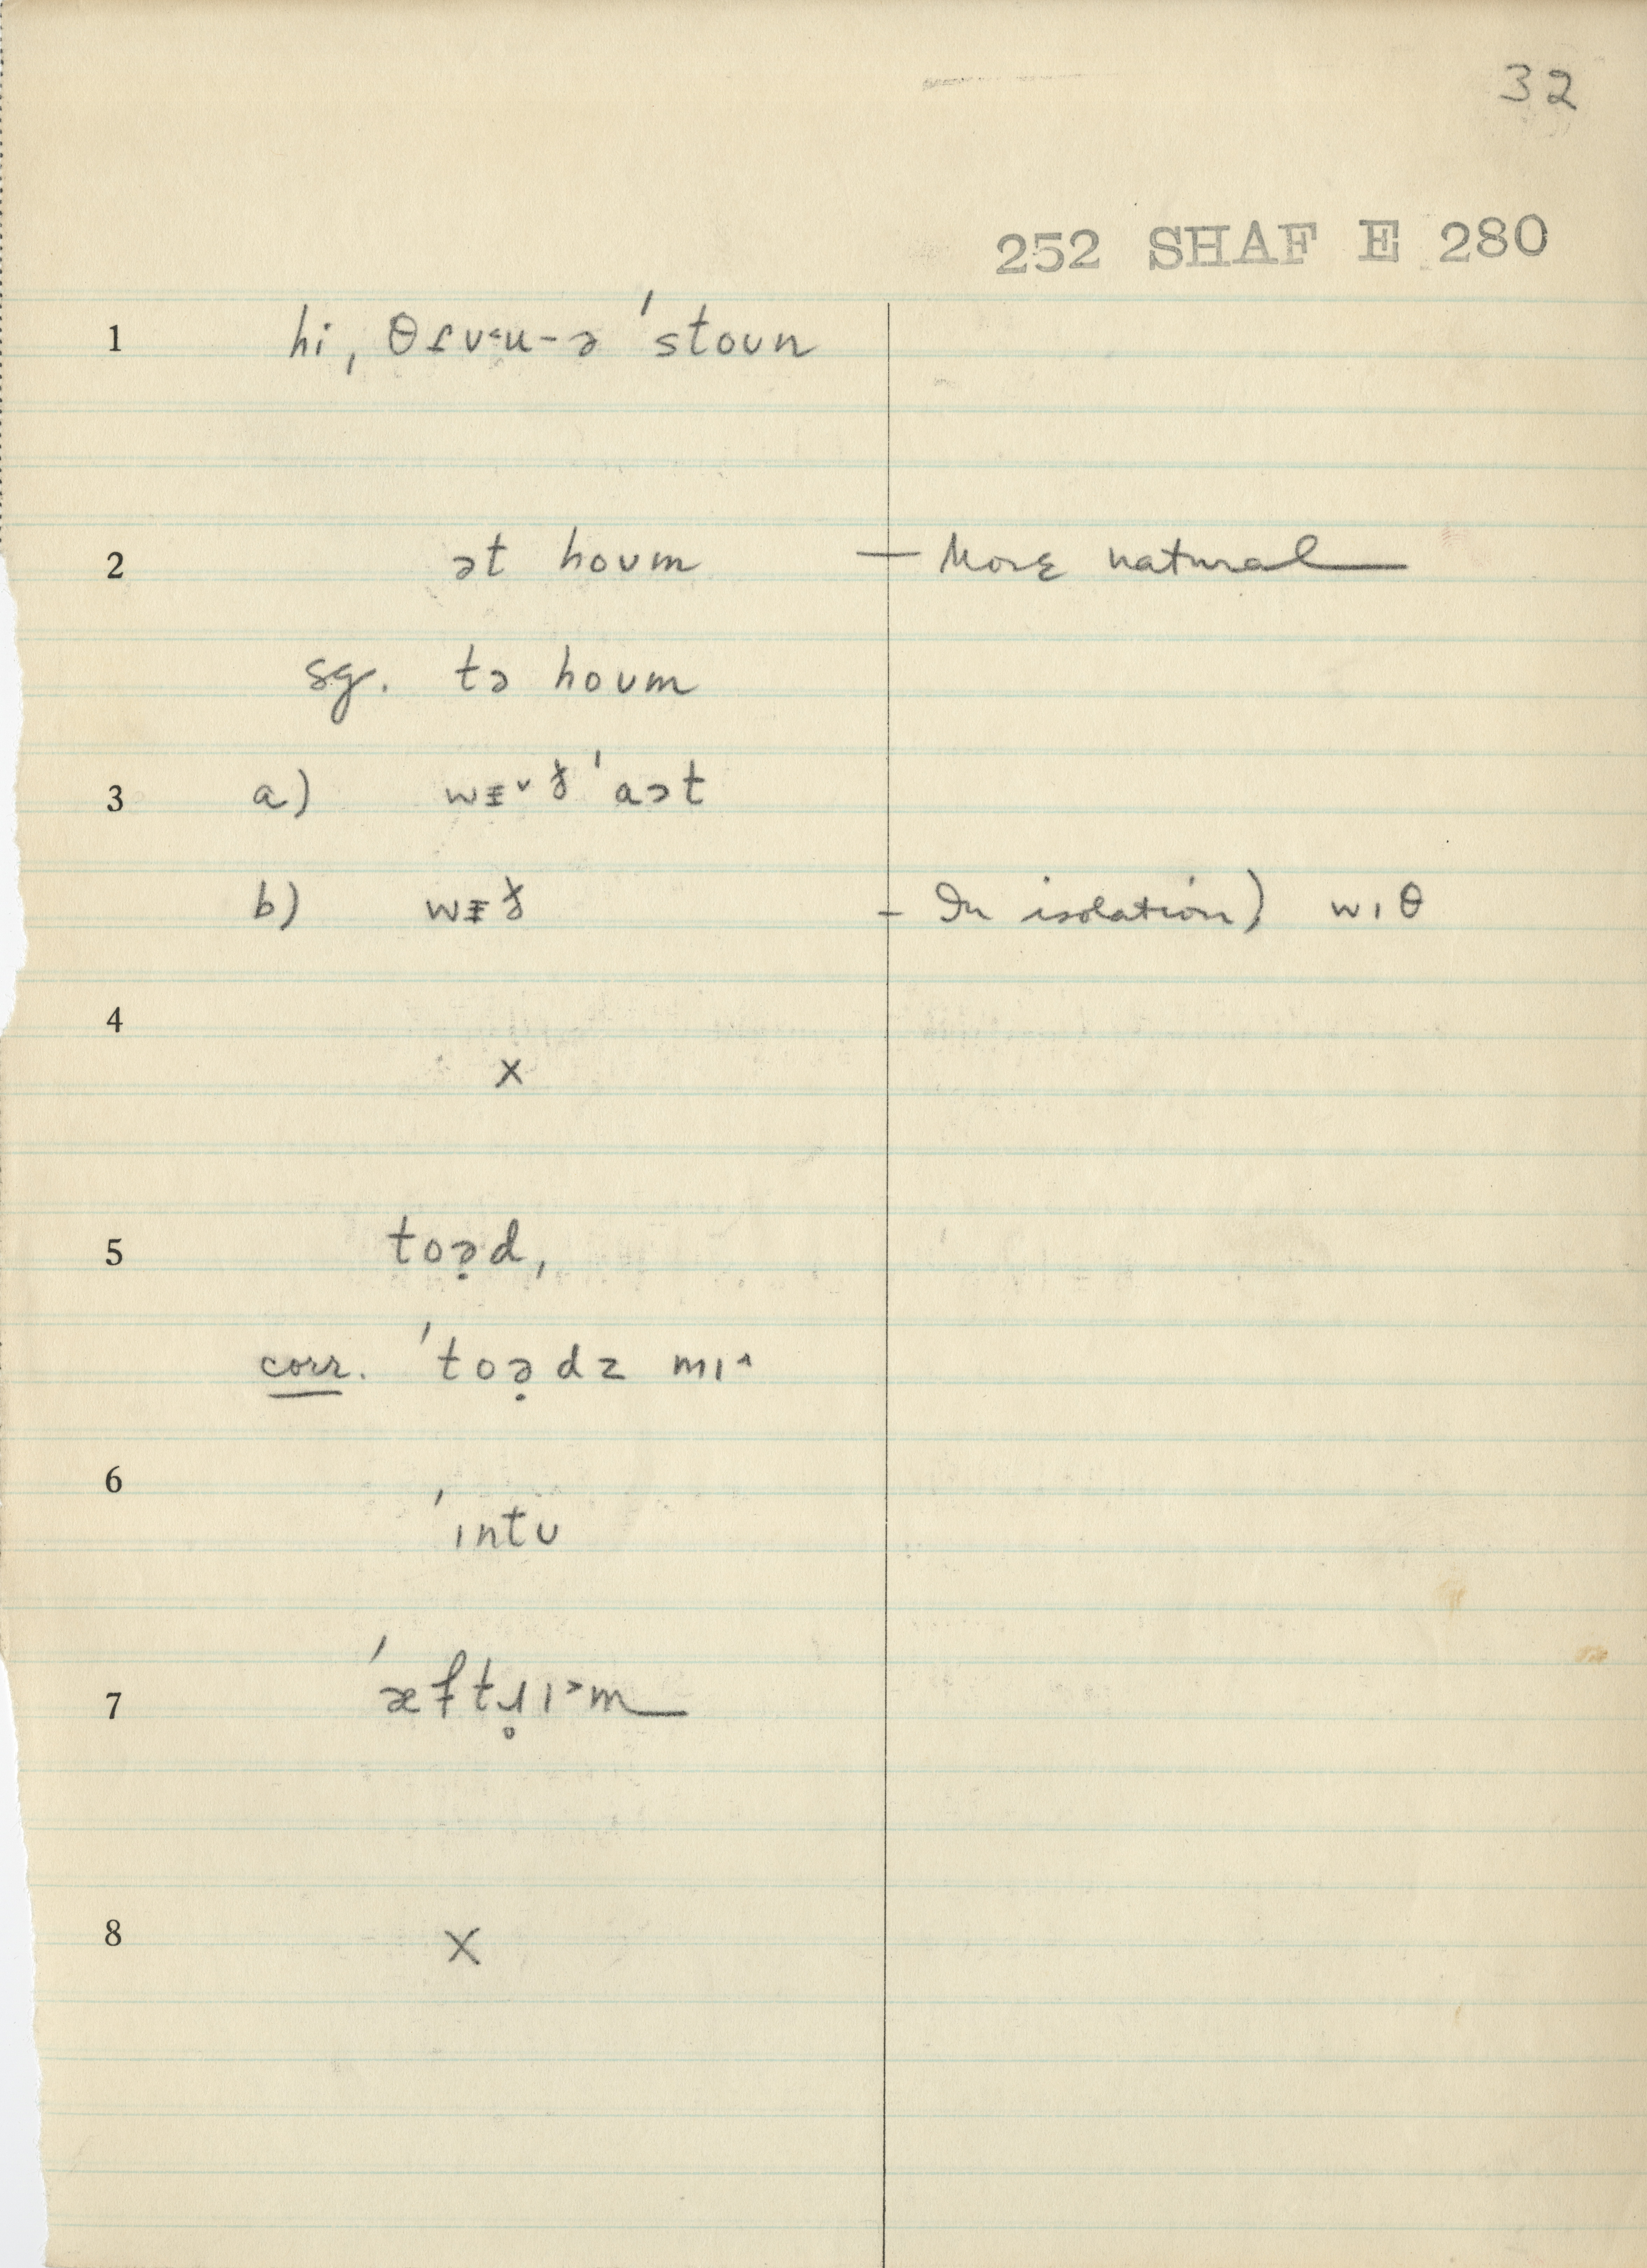 32
252 SHAF E 280
1 hi, θɾʊ˂u-ə ˈstoʊn
2 ət hoʊm — More natural
sg. tə hoʊm
3 a) wɪ̵ˇð ˈaət
b) wɪ̵ð – In isolation) wɪθ
4
x
5 toə̣d,
corr. ˈtoə̣dz mɪ˄
6
ˈɪntʊ
7 ˈæftɹ̥ɪ˃m
8 x